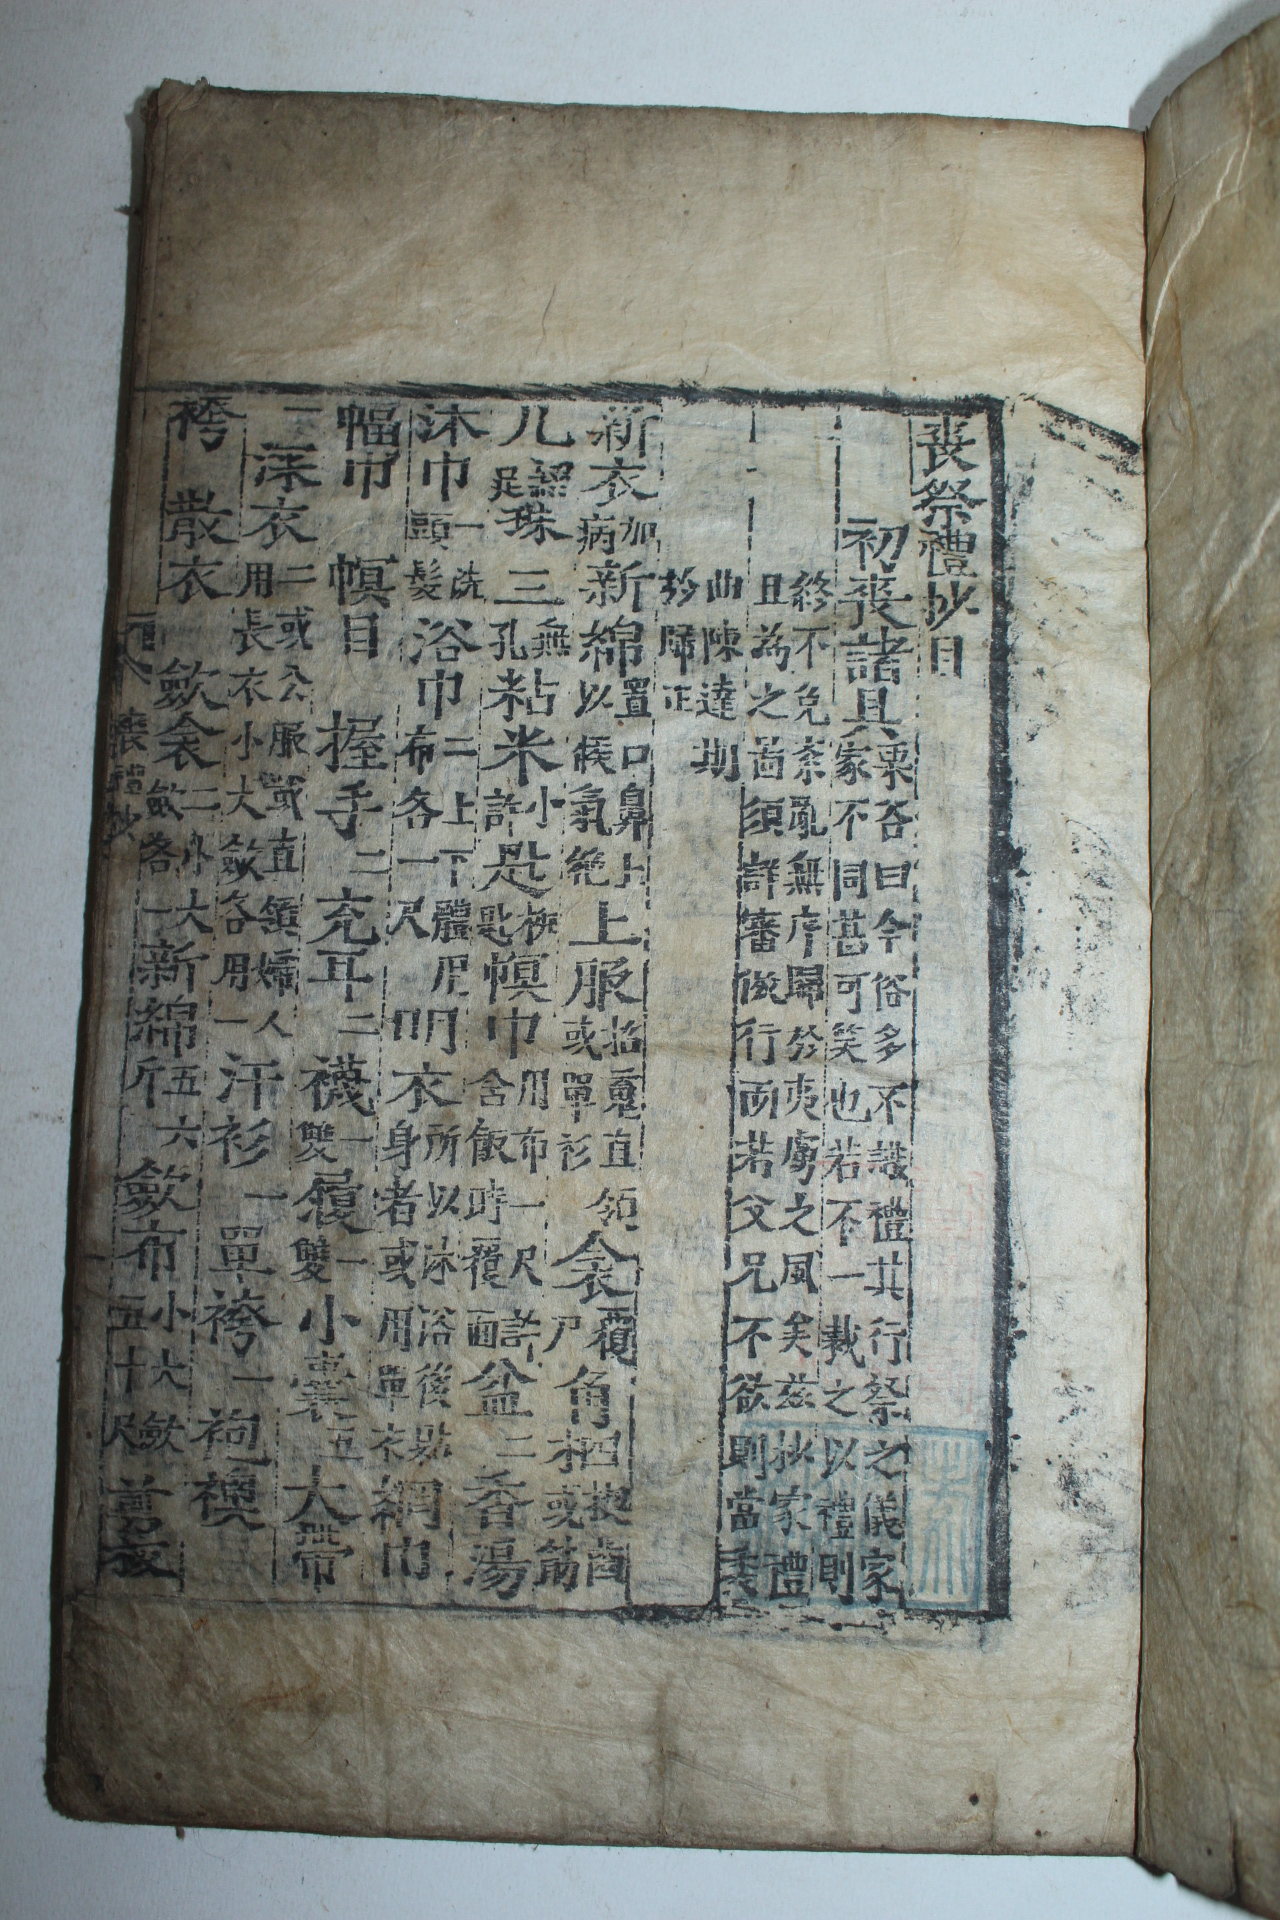 喪祭禮抄目
初喪諸具 栗谷曰今俗多不識禮其行祭之儀家
家不同甚可笑也若不一裁之以禮則
終不免紊亂無序歸於夷虜之風矣茲抄家禮
且為之啚須詳審倣行而若父兄不欲則當委
曲陳達期
於歸正
新衣 加病 新綿 置口鼻上以候氣絶 上服 招魂直領或單衫 衾 覆尸 角柶 楔齒或筯
几 綴足 珠 三無孔 粘米 小許 匙 柳匙 幎巾 用布一尺許含飯時覆面 盆 二 香湯
沐巾 一洗頭髮 浴巾 二上下體用布各一尺 明衣 所以沐浴後親身者或用單衣 網巾
幅巾 幎目 握手 二 充耳 二 襪 一雙 履 一雙 小囊 五 大帶
一 深衣 二或公服或直領婦人用長衣小大斂各用一 汗衫 一 單袴 一 袍襖
袴 散衣 斂衾 二小大斂各一 新綿 五六斤 斂布 小大斂五十尺
喪禮抄